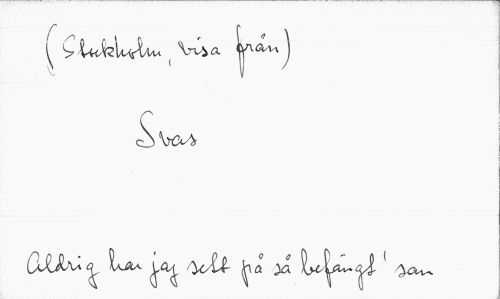 (Stockholm, visa från)
Svas
Aldrig har jag sett på så befängt' san